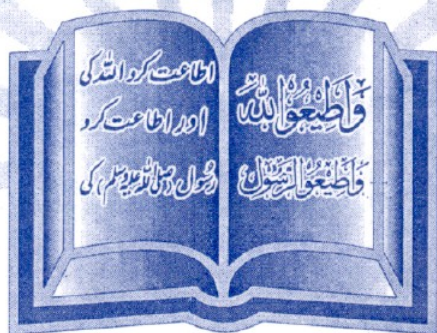 وَاَطِيْعُوا اللهَ
وَاَطِيْعُوا الرَّسُوْلَ
اطاعت کرو اللہ کی
اور اطاعت کرو
رسول (صلی اللہ علیہ وسلم) کی